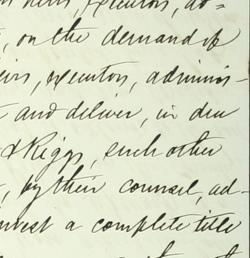 heirs, executors, ad-
, on the demand of
eirs, executors, adminis-
and deliver, in due
& Riggs, such other
, by their counsel, ad-
nvest a complete title